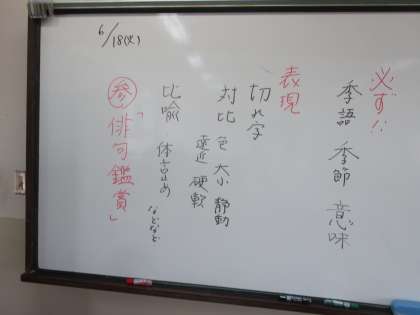 6/18(火)
必ず!!
季語 季節 意味
表現
切れ字
対比 色 大小 静動
遠近 硬軟
比喩 体言止め などなど
参「俳句鑑賞」